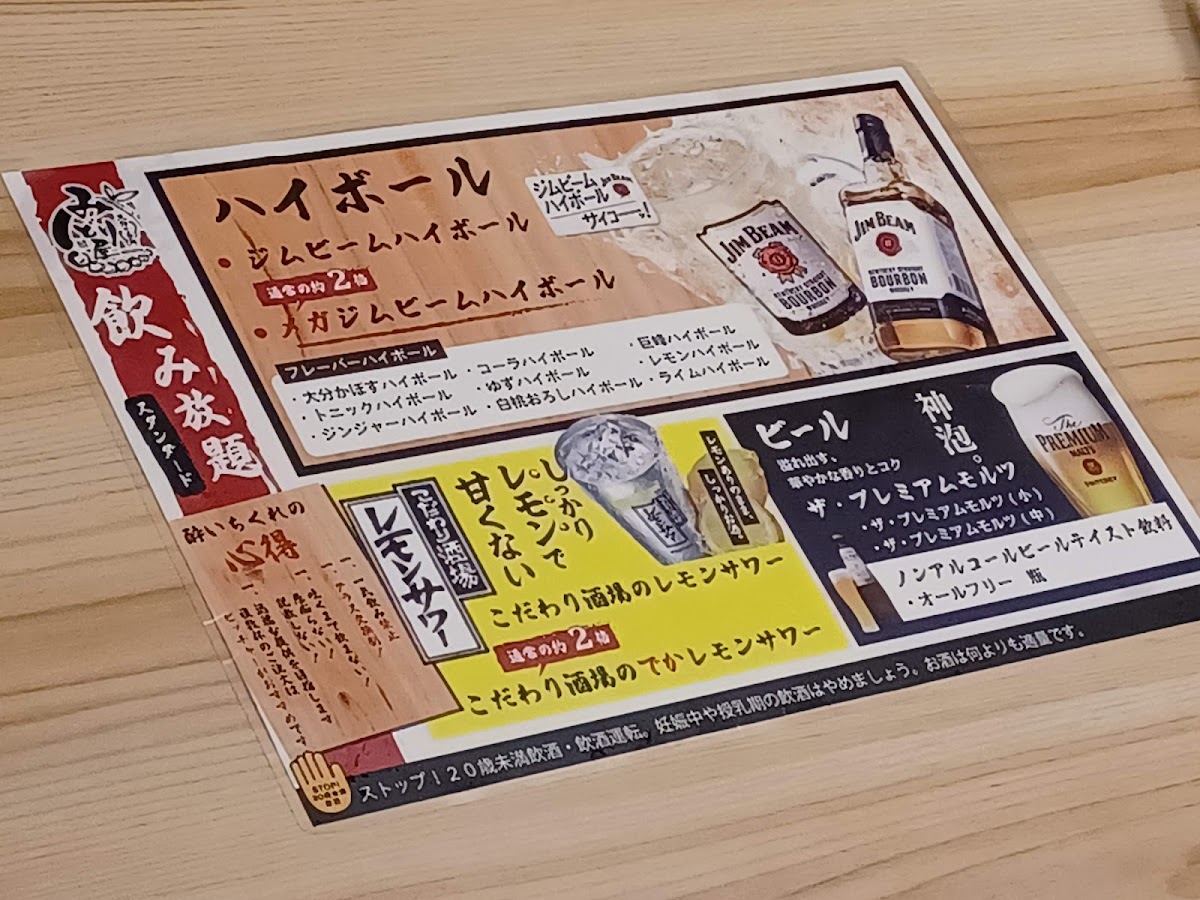 飲み放題
スタンダード
ハイボール
・ジムビームハイボール
通常の約2倍
・メガジムビームハイボール
ジムビーム
ハイボール
サイコーッ!
JIM BEAM
KENTUCKY STRAIGHT
BOURBON
WHISKEY
JIM BEAM
KENTUCKY STRAIGHT
BOURBON
WHISKEY
フレーバーハイボール
・大分かぼすハイボール
・トニックハイボール
・ジンジャーハイボール
・コーラハイボール
・ゆずハイボール
・白桃おろしハイボール
・巨峰ハイボール
・レモンハイボール
・ライムハイボール
酔いちくれの
心得
一、一気飲み禁止
こだわり酒場
レモンサワー
しっかり
レモンで
甘くない
こだわり酒場のレモンサワー
通常の約2倍
こだわり酒場のでかレモンサワー
ビール
溢れ出す、
華やかな香りとコク
神泡。
ザ・プレミアムモルツ
・ザ・プレミアムモルツ(小)
・ザ・プレミアムモルツ(中)
The
PREMIUM
MALT'S
SUNTORY
ノンアルコールビールテイスト飲料
・オールフリー 瓶
STOP!
ストップ!20歳未満飲酒・飲酒運転。妊娠中や授乳期の飲酒はやめましょう。お酒は何よりも適量です。